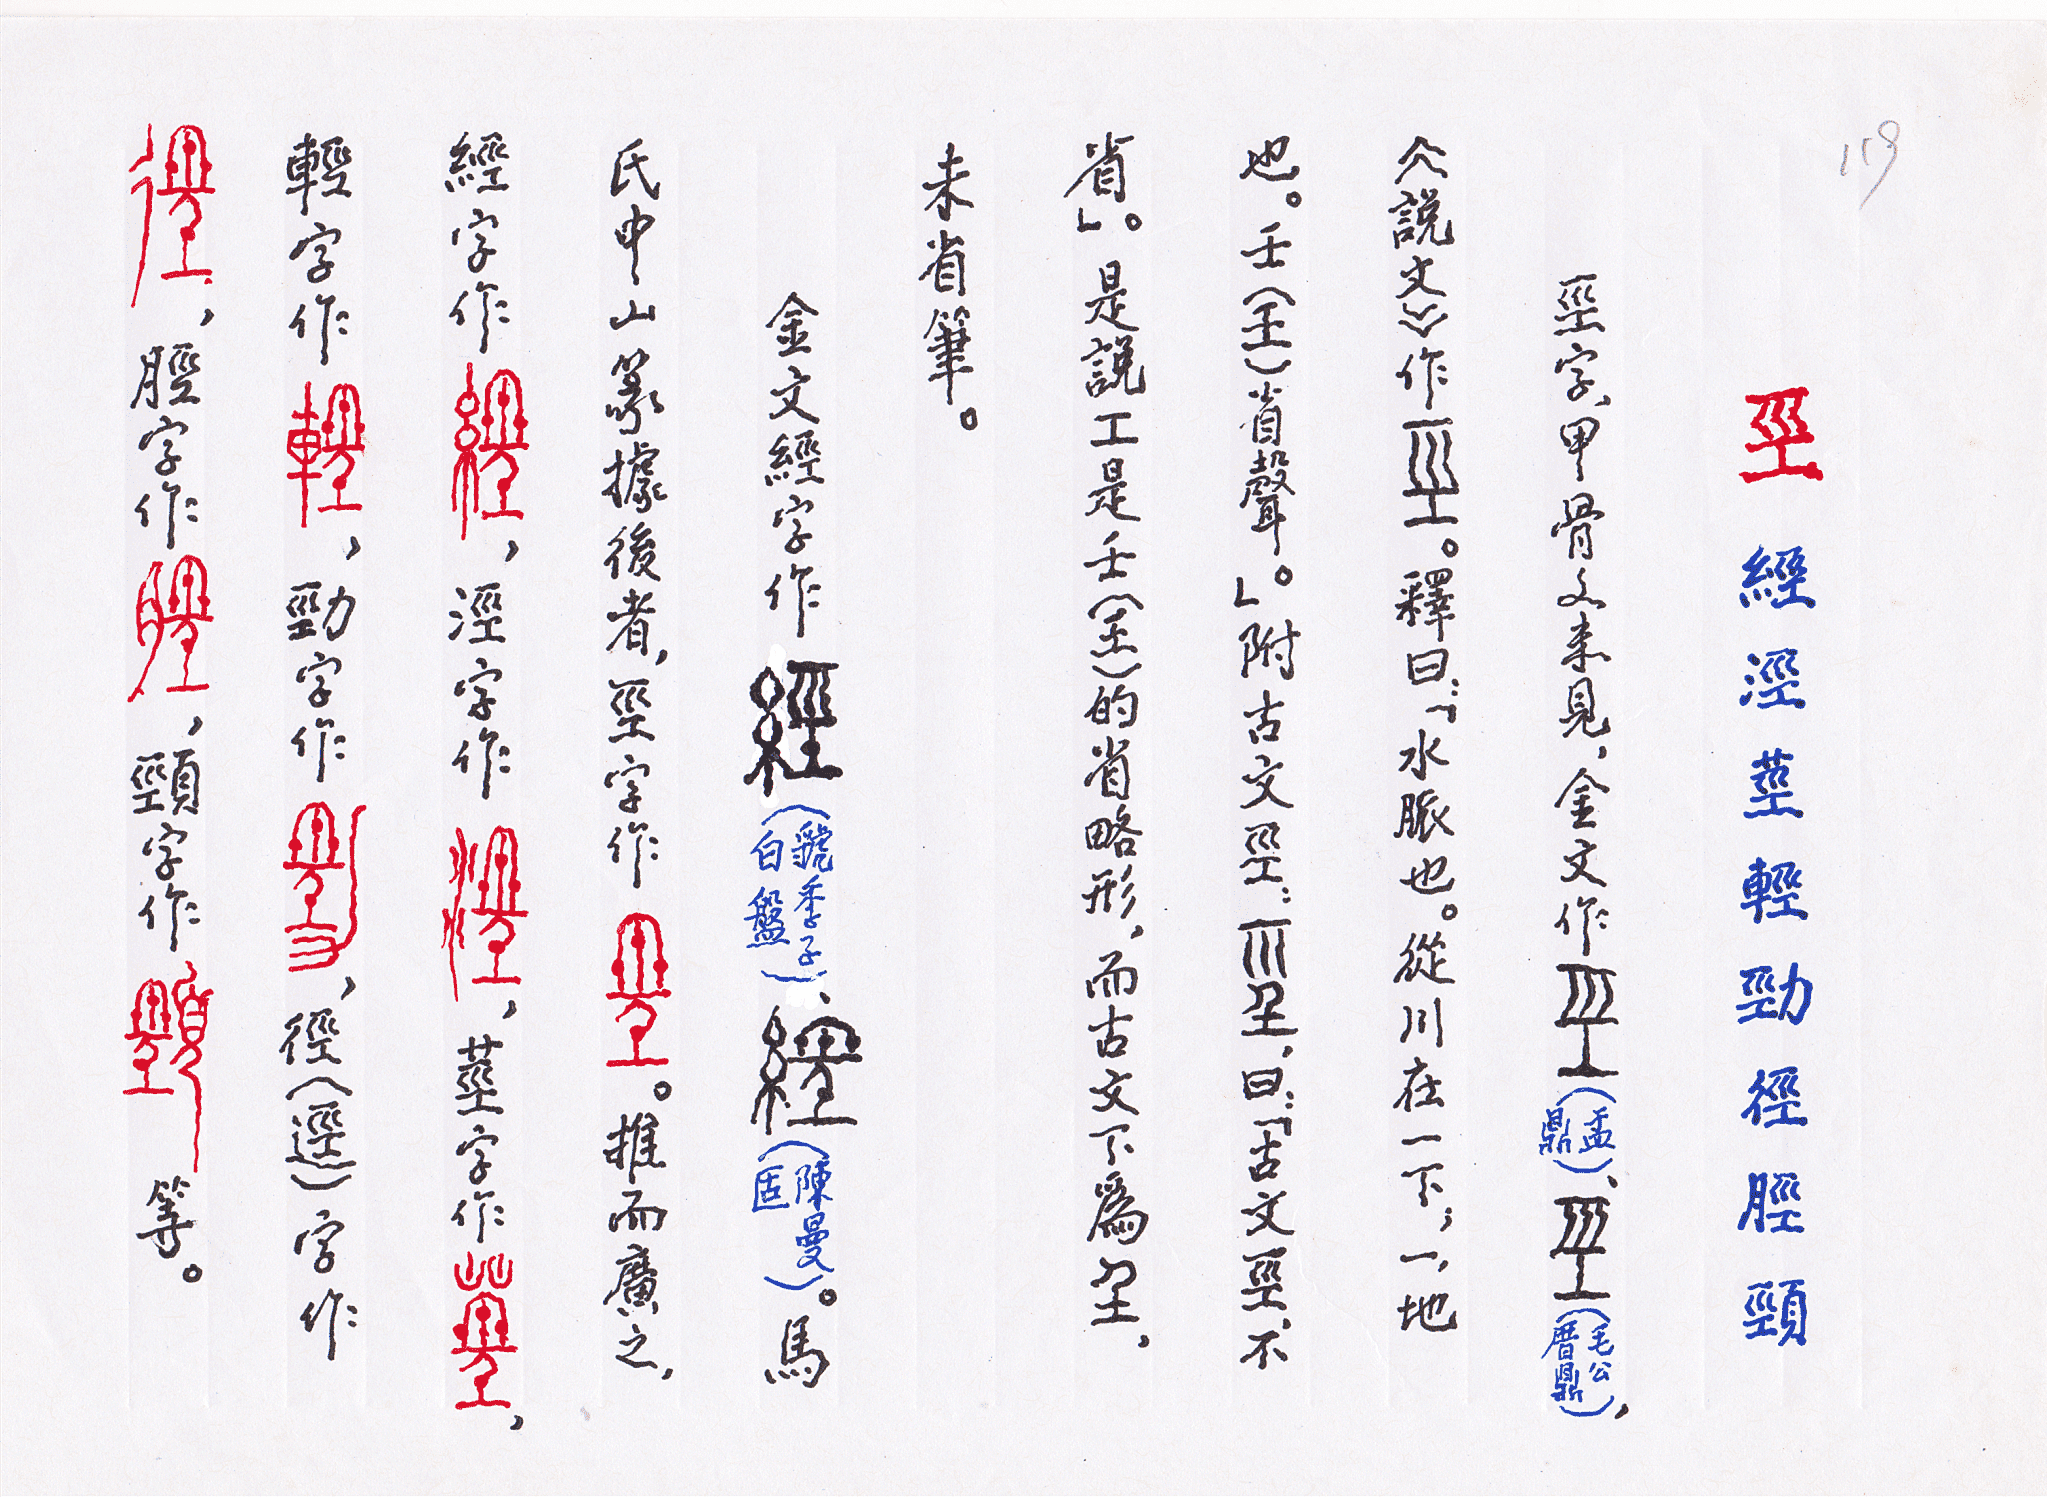 119
巠 經 涇 莖 輕 勁 徑 脛 頸
巠字、甲骨文未見，金文作巠(盂鼎)、巠(毛公厝鼎)，
《說文》作巠。釋曰：「水脈也。從川在一下；一，地
也。壬(𡈼)省聲。」附古文巠：𡿭，曰：「古文巠、不
省」。是說工是壬(𡈼)的省略形，而古文下為𡈼，
未省筆。
金文經字作經(虢季子白盤)、經(陳曼𠤳)。馬
氏中山篆據後者，巠字作巠。推而廣之，
經字作經，涇字作涇，莖字作莖，
輕字作輕，勁字作勁，徑(逕)字作
徑，脛字作脛，頸字作頸等。